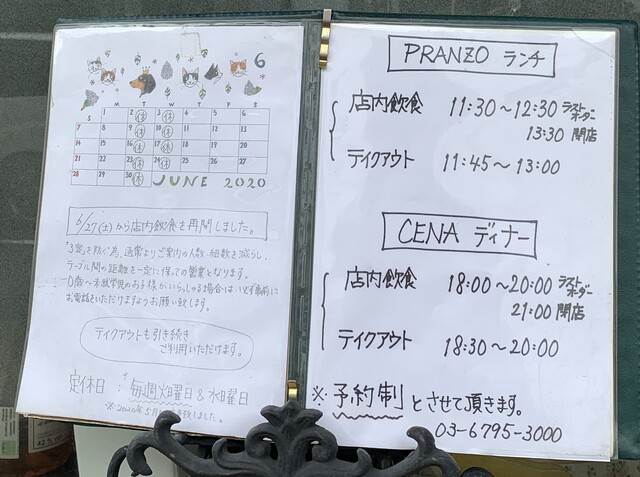 6
S M T W T F S
1 2休 3休 4 5 6
7 8 9休 10休 11 12 13
14 15 16休 17休 18 19 20
21 22 23休 24休 25 26 27
28 29 30休
JUNE 2020
6/27(土)から店内飲食を再開しました。
「3密」を防ぐ為、通常よりご案内の人数・組数を減らし、
テーブル間の距離を一定に保っての営業となります。
0歳〜未就学児のお子様がいらっしゃる場合は、必ず事前に
お電話をいただけますようお願い致します。
テイクアウトも引き続き
ご利用いただけます。
定休日：毎週火曜日&水曜日
※2020年5月 致しました。
PRANZO ランチ
店内飲食 11:30〜12:30 ラストオーダー
13:30 閉店
テイクアウト 11:45〜13:00
CENA ディナー
店内飲食 18:00〜20:00 ラストオーダー
21:00 閉店
テイクアウト 18:30〜20:00
※予約制とさせて頂きます。
03-6795-3000